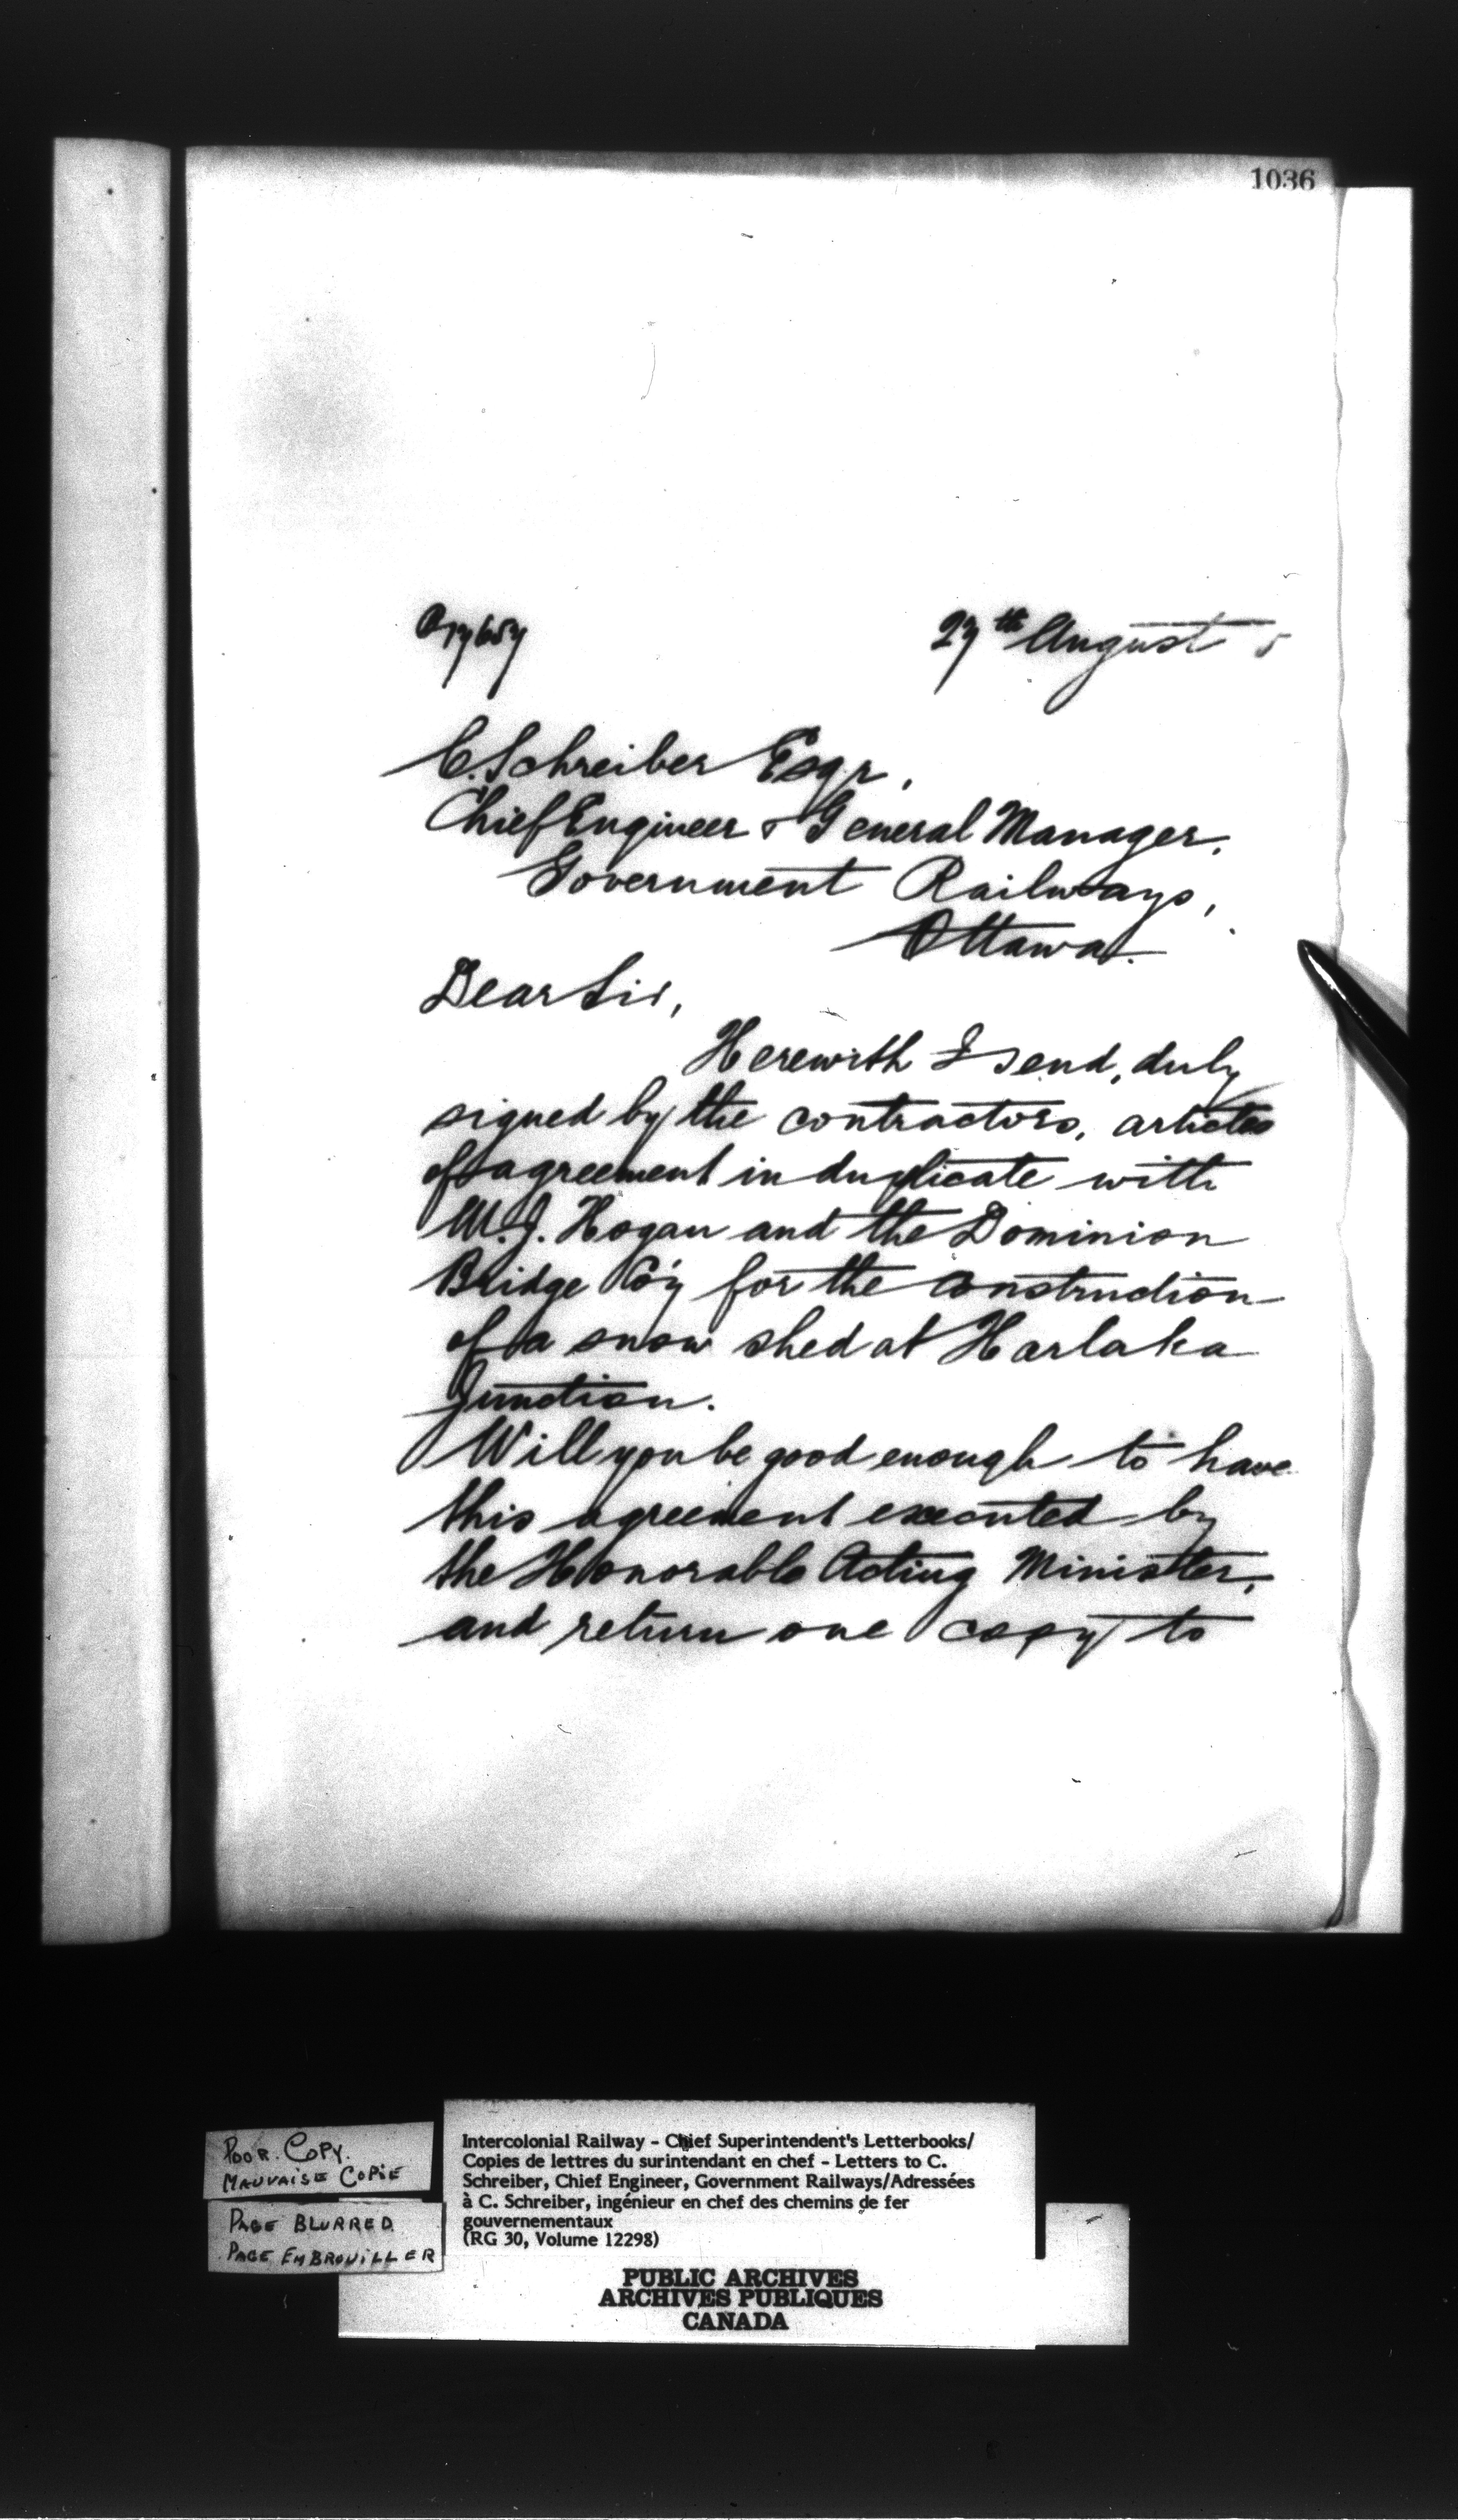 1036
27th August 5
C. Schreiber Esqr,
Chief Engineer & General Manager,
Government Railways,
Ottawa.
Dear Sir,
Herewith I send, duly
signed by the contractors, articles
of agreement in duplicate with
M. J. Hogan and the Dominion
Bridge Co'y for the construction
of a snow shed at Harlaka
Junction.
Will you be good enough to have
this agreement executed by
the Honorable Acting Minister,
and return one copy to
POOR. COPY.
MAUVAISE COPIE
PAGE BLURRED
PAGE EMBROUILLER
Intercolonial Railway - Chief Superintendent's Letterbooks/
Copies de lettres du surintendant en chef - Letters to C.
Schreiber, Chief Engineer, Government Railways/Adressées
à C. Schreiber, ingénieur en chef des chemins de fer
gouvernementaux
(RG 30, Volume 12298)
PUBLIC ARCHIVES
ARCHIVES PUBLIQUES
CANADA